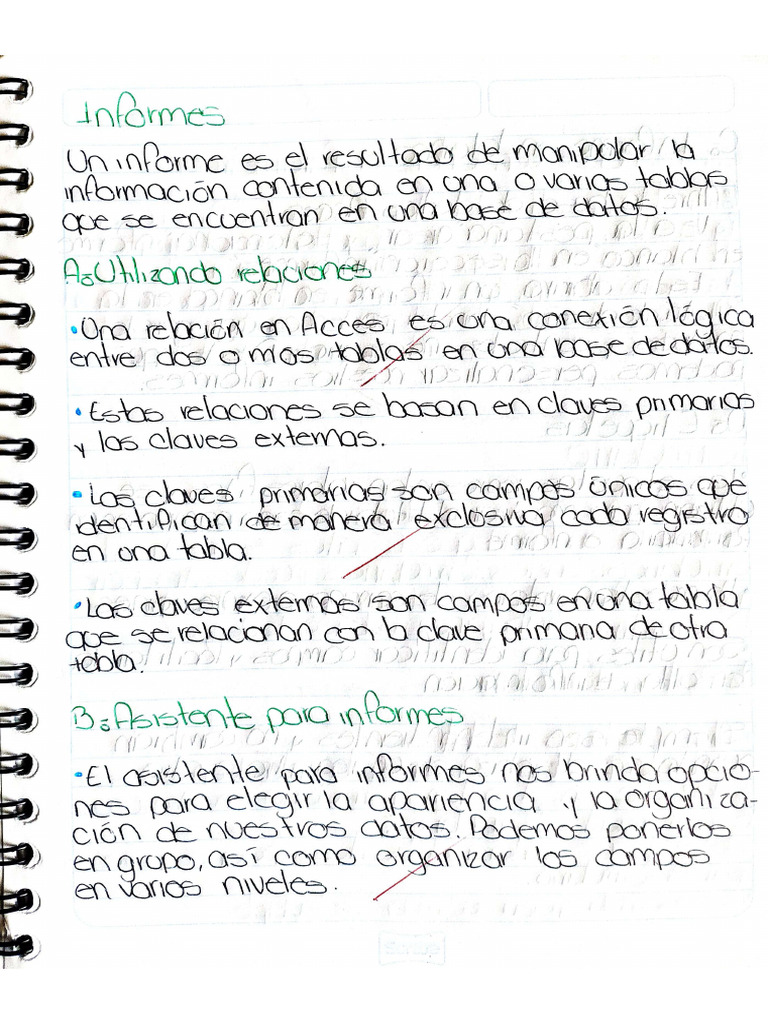 Informes
Un informe es el resultado de manipular la
información contenida en una o varias tablas
que se encuentran en una base de datos.
A: Utilizando relaciones
• Una relación en Acces es una conexión lógica
entre dos o más tablas en una base de datos.
• Estas relaciones se basan en claves primarias
y las claves externas.
• Las claves primarias son campos únicos que
identifican de manera exclusiva cada registro
en una tabla.
• Las claves externas son campos en una tabla
que se relacionan con la clave primaria de otra
tabla.
B: Asistente para informes
• El asistente para informes nos brinda opcio-
nes para elegir la apariencia y la organiza-
ción de nuestros datos. Podemos ponerlos
en grupo, así como organizar los campos
en varios niveles.
Scribe